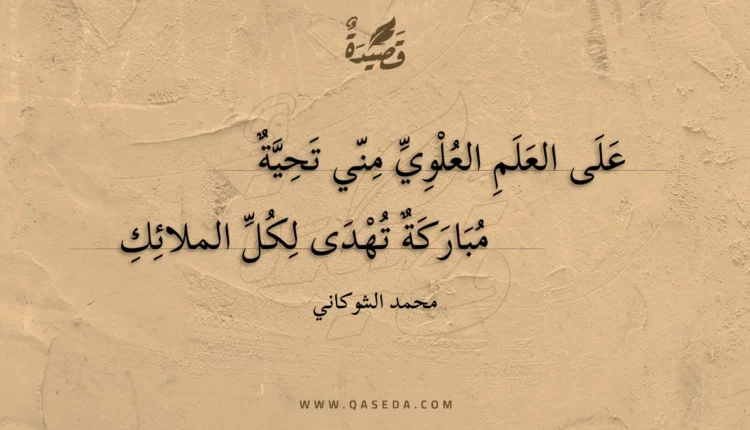 قَصِيْدَةٌ
عَلَى العَلَمِ العُلْوِيِّ مِنّي تَحِيَّةٌ
مُبَارَكَةٌ تُهْدَى لِكُلِّ الملائِكِ
محمد الشوكاني
WWW.QASEDA.COM